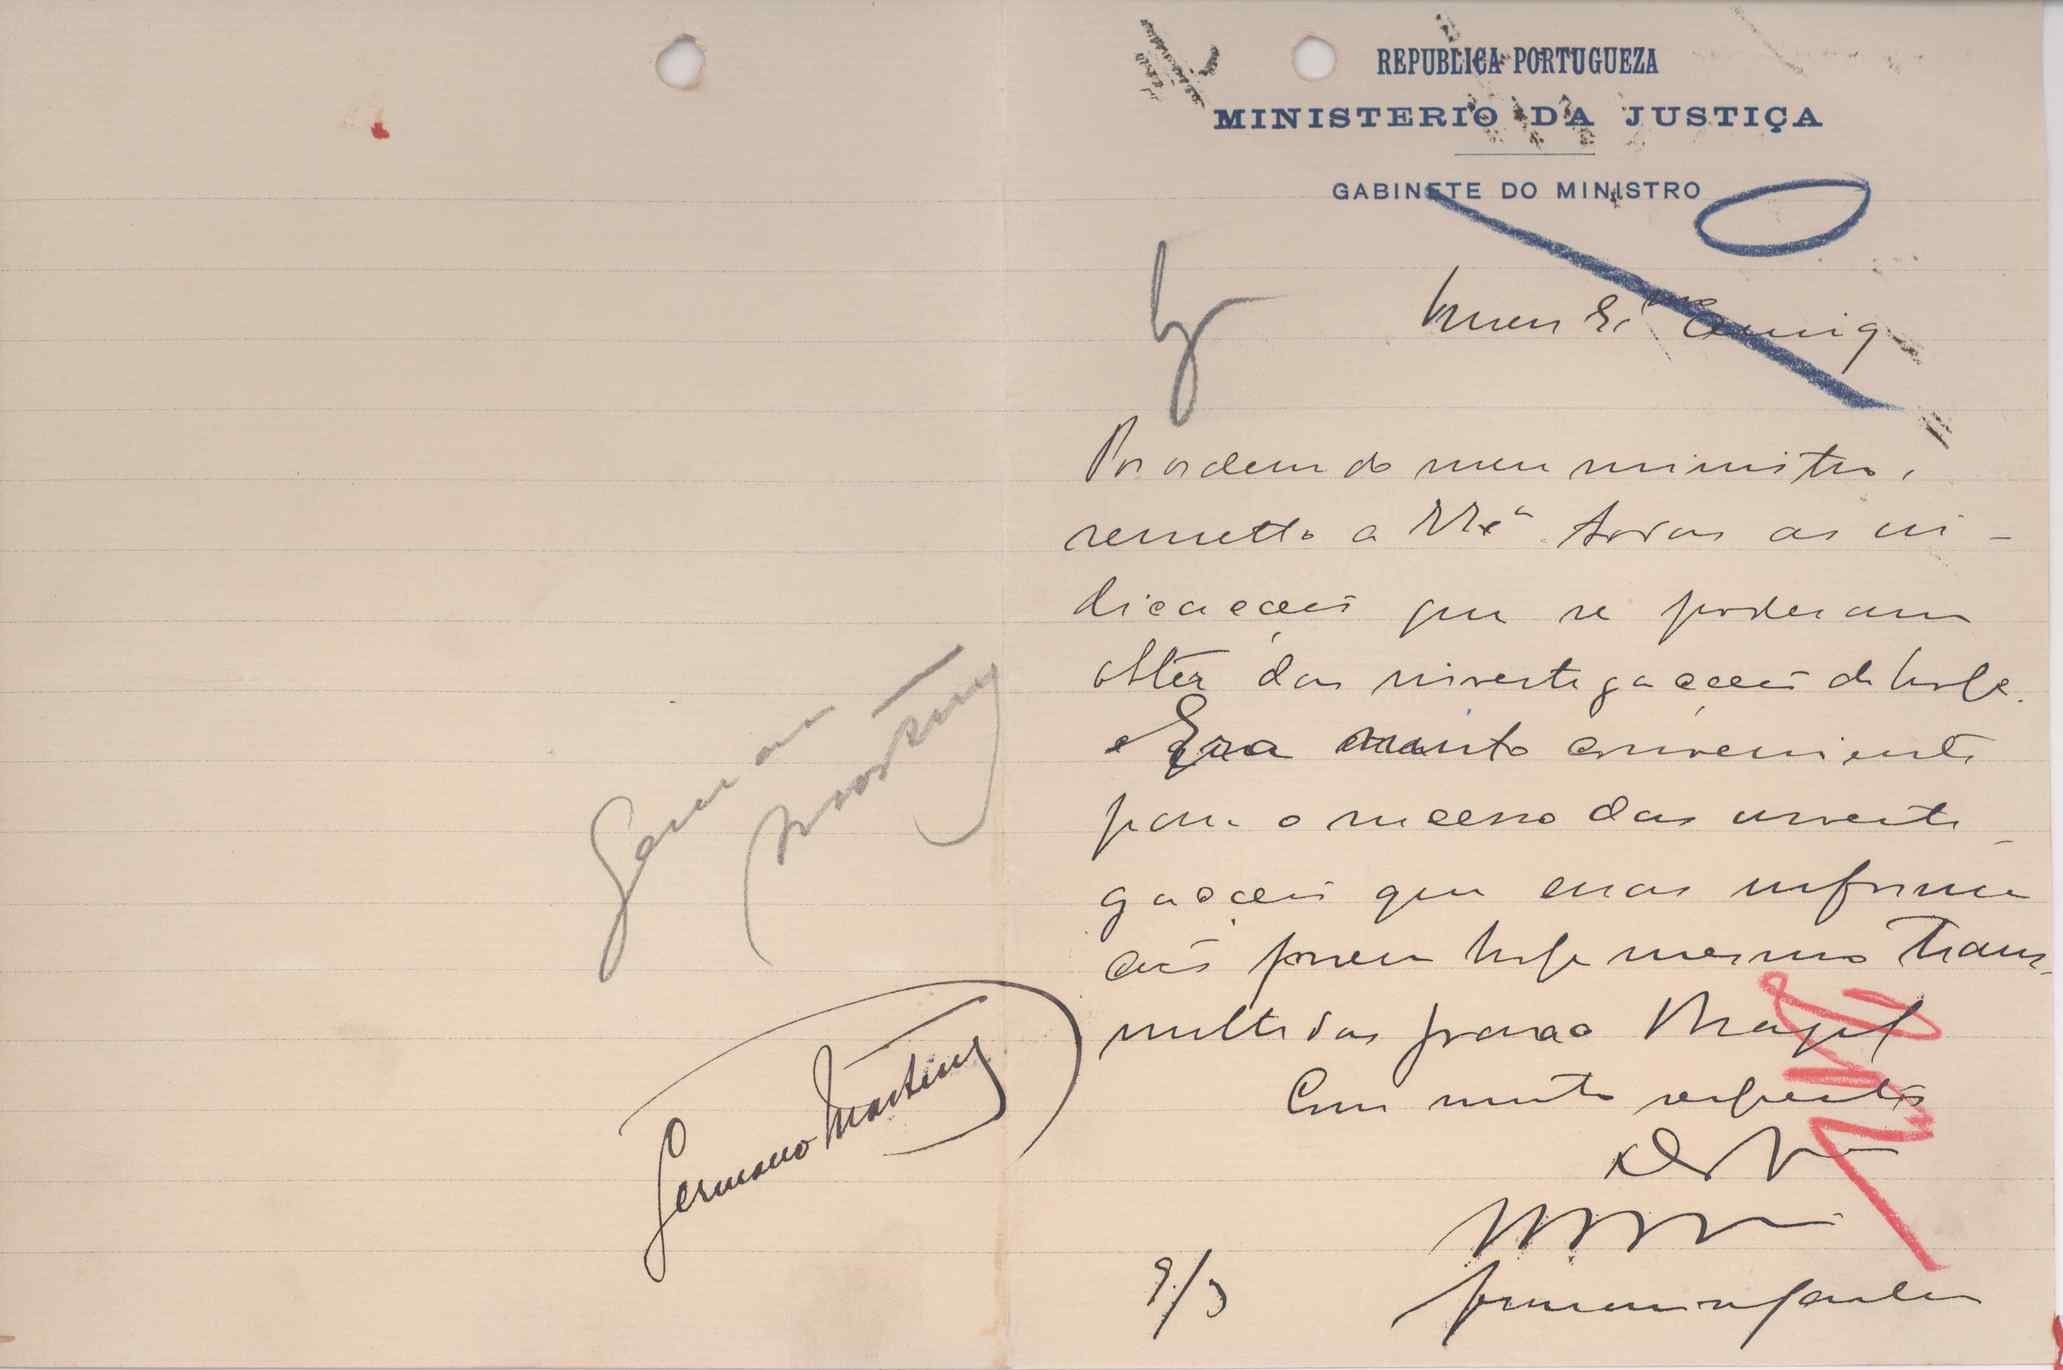 REPUBLICA PORTUGUEZA
MINISTERIO DA JUSTIÇA
GABINETE DO MINISTRO
Meu Amigo
Por ordem do meu ministro,
remetto a V. Exª todas as in-
dicações que se poderam
obter das investigações de hoje.
e Era muito conveniente
para o sucesso das investi-
gações que essas informa
ções fossem hoje mesmo trans-
mittidas para o Brazil
Com muito respeito
9/3
Germano
Martins
Germano Martins